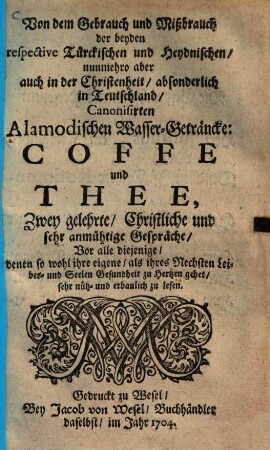 Von dem Gebrauch und Mißbrauch
der beyden
respective Türckischen und Heydnischen/
nunmehro aber
auch in der Christenheit/ absonderlich
in Teutschland/
Canonisirten
Alamodischen Wasser-Geträncke:
COFFE
und
THEE,
Zwey gelehrte/ Christliche und
sehr anmühtige Gespräche/
Vor alle diejenige/
denen so wohl ihre eigene/ als ihres Nechsten Lei-
bes- und Seelen Gesundheit zu Hertzen gehet/
sehr nütz- und erbaulich zu lesen.
Gedruckt zu Wesel/
Bey Jacob von Wesel/ Buchhändler
daselbst/ im Jahr 1704.